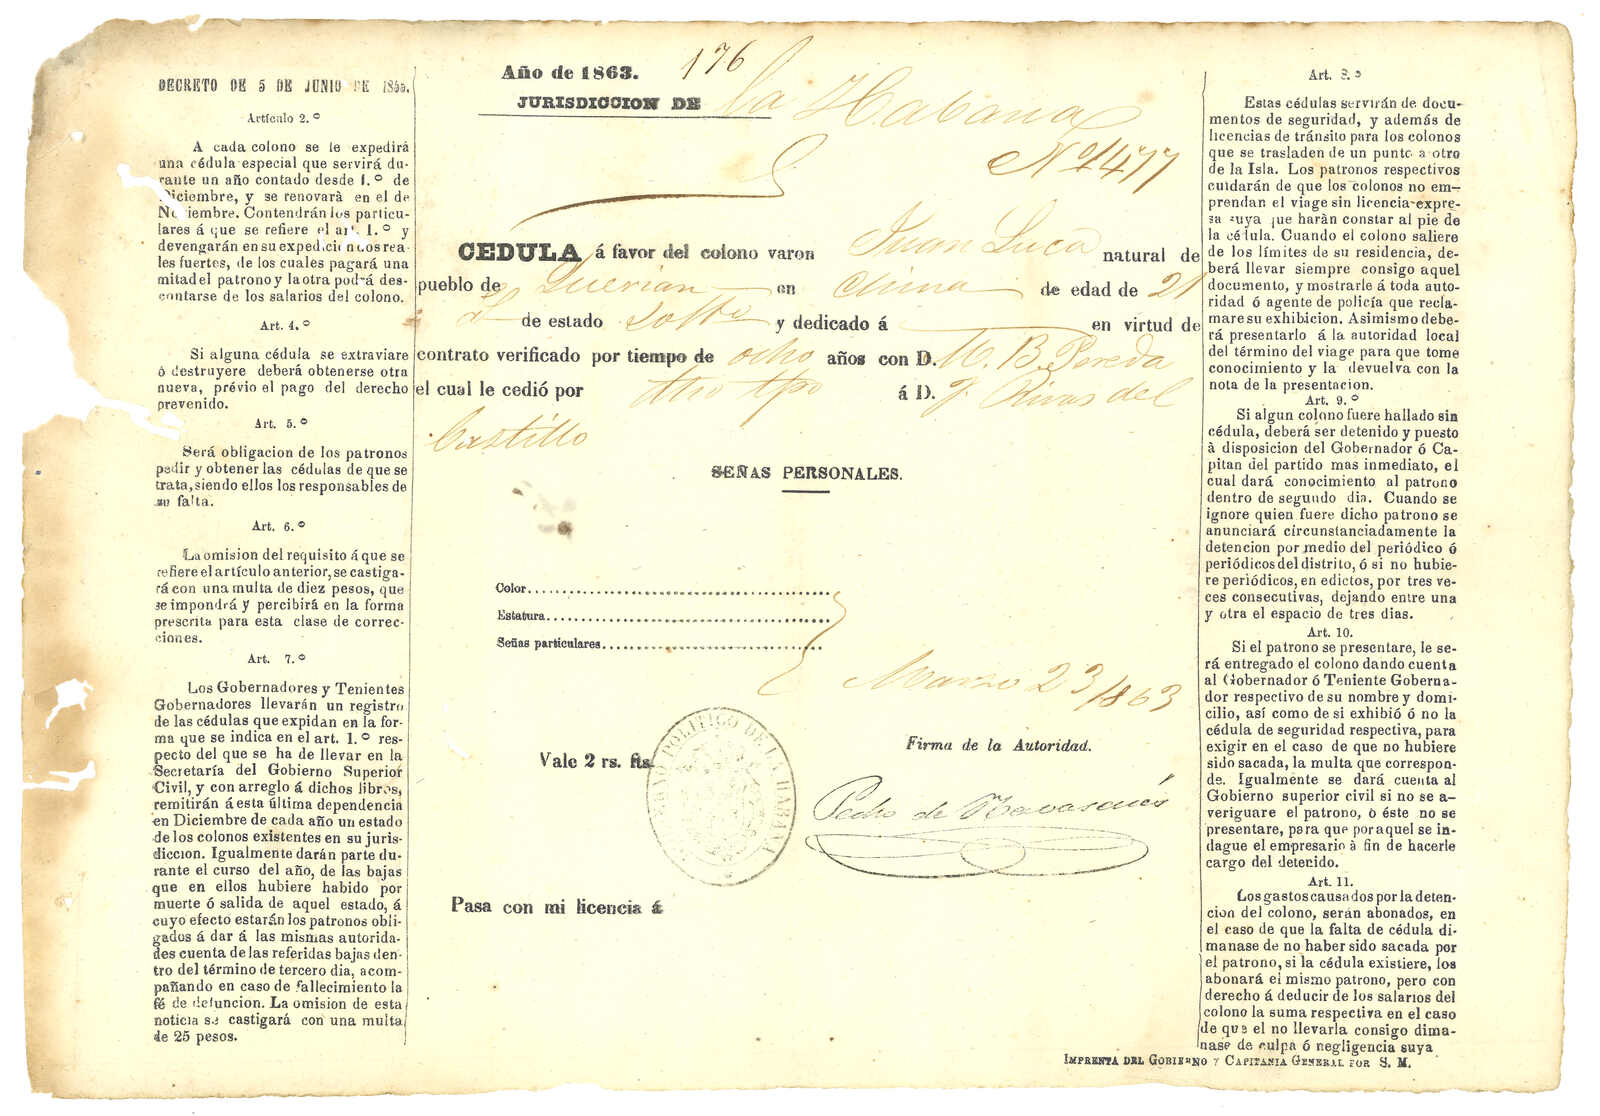 DECRETO DE 5 DE JUNIO DE 1855.
Artículo 2.º
A cada colono se le expedirá
una cédula especial que servirá du-
rante un año contado desde 1.º de
Diciembre, y se renovarà en el de
Noviembre. Contendrán los particu-
lares á que se refiere el art. 1.º y
devengarán en su expedicion dos rea-
les fuertes, de los cuales pagará una
mitad el patrono y la otra podrá des-
contarse de los salarios del colono.
Art. 4.º
Si alguna cédula se extraviare
ó destruyere deberá obtenerse otra
nueva, prévio el pago del derecho
prevenido.
Art. 5.º
Será obligacion de los patronos
pedir y obtener las cédulas de que se
trata, siendo ellos los responsables de
su falta.
Art. 6.º
La omision del requisito á que se
refiere el artículo anterior, se castiga-
rá con una multa de diez pesos, que
se impondrá y percibirá en la forma
prescrita para esta clase de correc-
ciones.
Art. 7.º
Los Gobernadores y Tenientes
Gobernadores llevarán un registro
de las cédulas que expidan en la for-
ma que se indica en el art. 1.º res-
pecto del que se ha de llevar en la
Secretaría del Gobierno Superior
Civil, y con arreglo á dichos libros,
remitirán á esta última dependencia
en Diciembre de cada año un estado
de los colonos existentes en su juris-
diccion. Igualmente darán parte du-
rante el curso del año, de las bajas
que en ellos hubiere habido por
muerte ó salida de aquel estado, á
cuyo efecto estarán los patronos obli-
gados á dar á las mismas autorida-
des cuenta de las referidas bajas den-
tro del término de tercero dia, acom-
pañando en caso de fallecimiento la
fé de defuncion. La omision de esta
noticia se castigará con una multa
de 25 pesos.
Año de 1863. 176
JURISDICCION DE la Habana
Nº 1477
CEDULA á favor del colono varon Juan Luca natural de
pueblo de en China de edad de 21
de estado Solto y dedicado á en virtud de
contrato verificado por tiempo de ocho años con D. M. B. Pereda
el cual le cedió por otro tpo á D. J. Rivas del
Castillo
SEÑAS PERSONALES.
Color
Estatura
Señas particulares
Marzo 23/863
Vale 2 rs. fts.
GOBIERNO POLITICO DE LA HABANA
Firma de la Autoridad.
Pedro de Navascués
Pasa con mi licencia á
Art. 8.º
Estas cédulas servirán de docu-
mentos de seguridad, y además de
licencias de tránsito para los colonos
que se trasladen de un punto a otro
de la Isla. Los patronos respectivos
cuidarán de que los colonos no em-
prendan el viage sin licencia expre-
sa suya que haràn constar al pie de
la cédula. Cuando el colono saliere
de los límites de su residencia, de-
berá llevar siempre consigo aquel
documento, y mostrarle á toda auto-
ridad ó agente de policía que recla-
mare su exhibicion. Asimismo debe-
rá presentarlo á la autoridad local
del término del viage para que tome
conocimiento y la devuelva con la
nota de la presentacion.
Art. 9.º
Si algun colono fuere hallado sin
cédula, deberá ser detenido y puesto
à disposicion del Gobernador ó Ca-
pitan del partido mas inmediato, el
cual dará conocimiento al patrono
dentro de segundo dia. Cuando se
ignore quien fuere dicho patrono se
anunciará circunstanciadamente la
detencion por medio del periódico ó
periódicos del distrito, ó si no hubie-
re periódicos, en edictos, por tres ve-
ces consecutivas, dejando entre una
y otra el espacio de tres dias.
Art. 10.
Si el patrono se presentare, le se-
rá entregado el colono dando cuenta
al Gobernador ó Teniente Goberna-
dor respectivo de su nombre y domi-
cilio, así como de si exhibió ó no la
cédula de seguridad respectiva, para
exigir en el caso de que no hubiere
sido sacada, la multa que correspon-
de. Igualmente se dará cuenta al
Gobierno superior civil si no se a-
veriguare el patrono, ò éste no se
presentare, para que por aquel se in-
dague el empresario à fin de hacerle
cargo del detenido.
Art. 11.
Los gastos causados por la deten-
cion del colono, serán abonados, en
el caso de que la falta de cédula di-
manase de no haber sido sacada por
el patrono, si la cédula existiere, los
abonará el mismo patrono, pero con
derecho á deducir de los salarios del
colono la suma respectiva en el caso
de que el no llevarla consigo dima-
nase de culpa ó negligencia suya
IMPRENTA DEL GOBIERNO Y CAPITANIA GENERAL POR S. M.